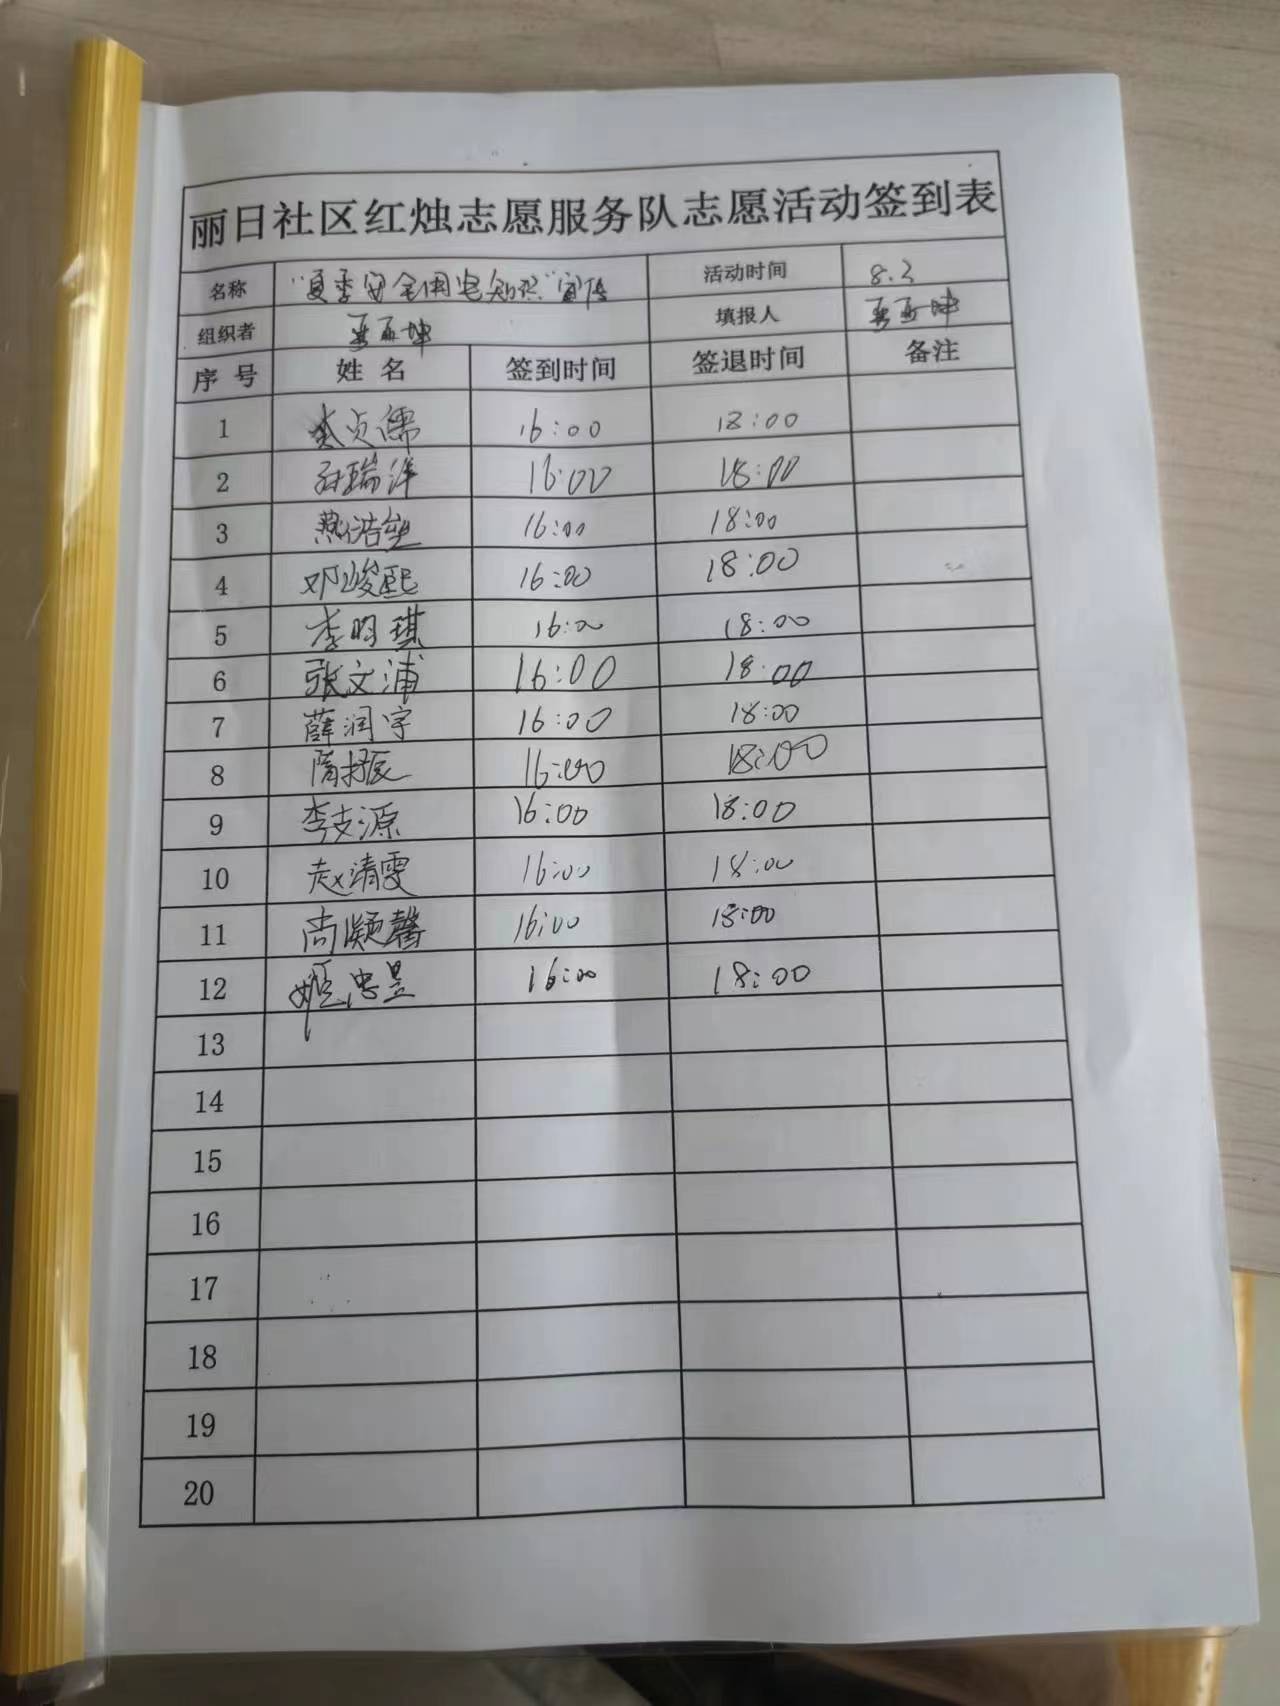 丽日社区红烛志愿服务队志愿活动签到表
名称 “夏季安全用电知识”宣传 活动时间 8.3
组织者 填报人
序号 姓名 签到时间 签退时间 备注
1 16:00 18:00
2 孙瑞洋 16:00 18:00
3 16:00 18:00
4 邓峻熙 16:00 18:00
5 李明琪 16:00 18:00
6 张文浦 16:00 18:00
7 薛润宇 16:00 18:00
8 16:00 18:00
9 李支源 16:00 18:00
10 赵清雯 16:00 18:00
11 尚凝馨 16:00 18:00
12 姬忠昱 16:00 18:00
13
14
15
16
17
18
19
20